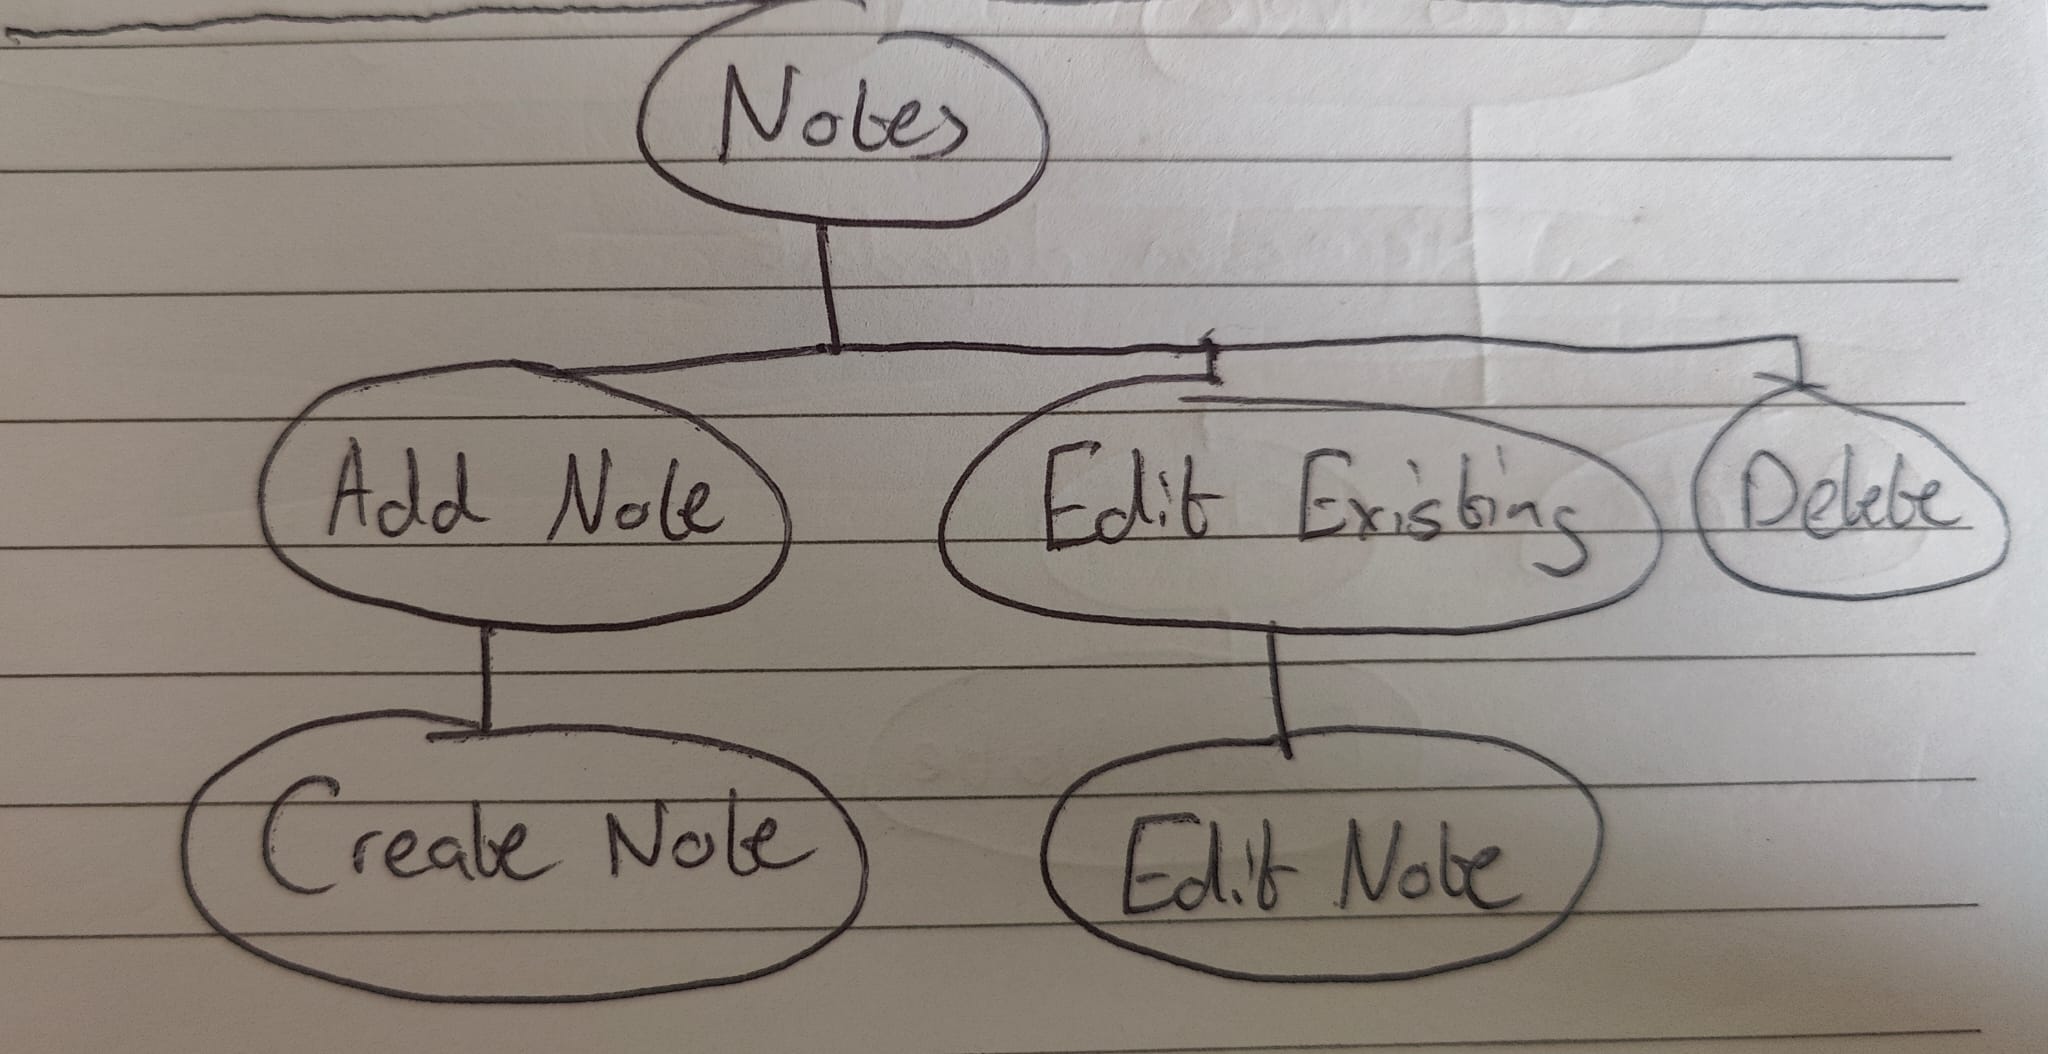 Notes
Add Note
Edit Existing
Delete
Create Note
Edit Note